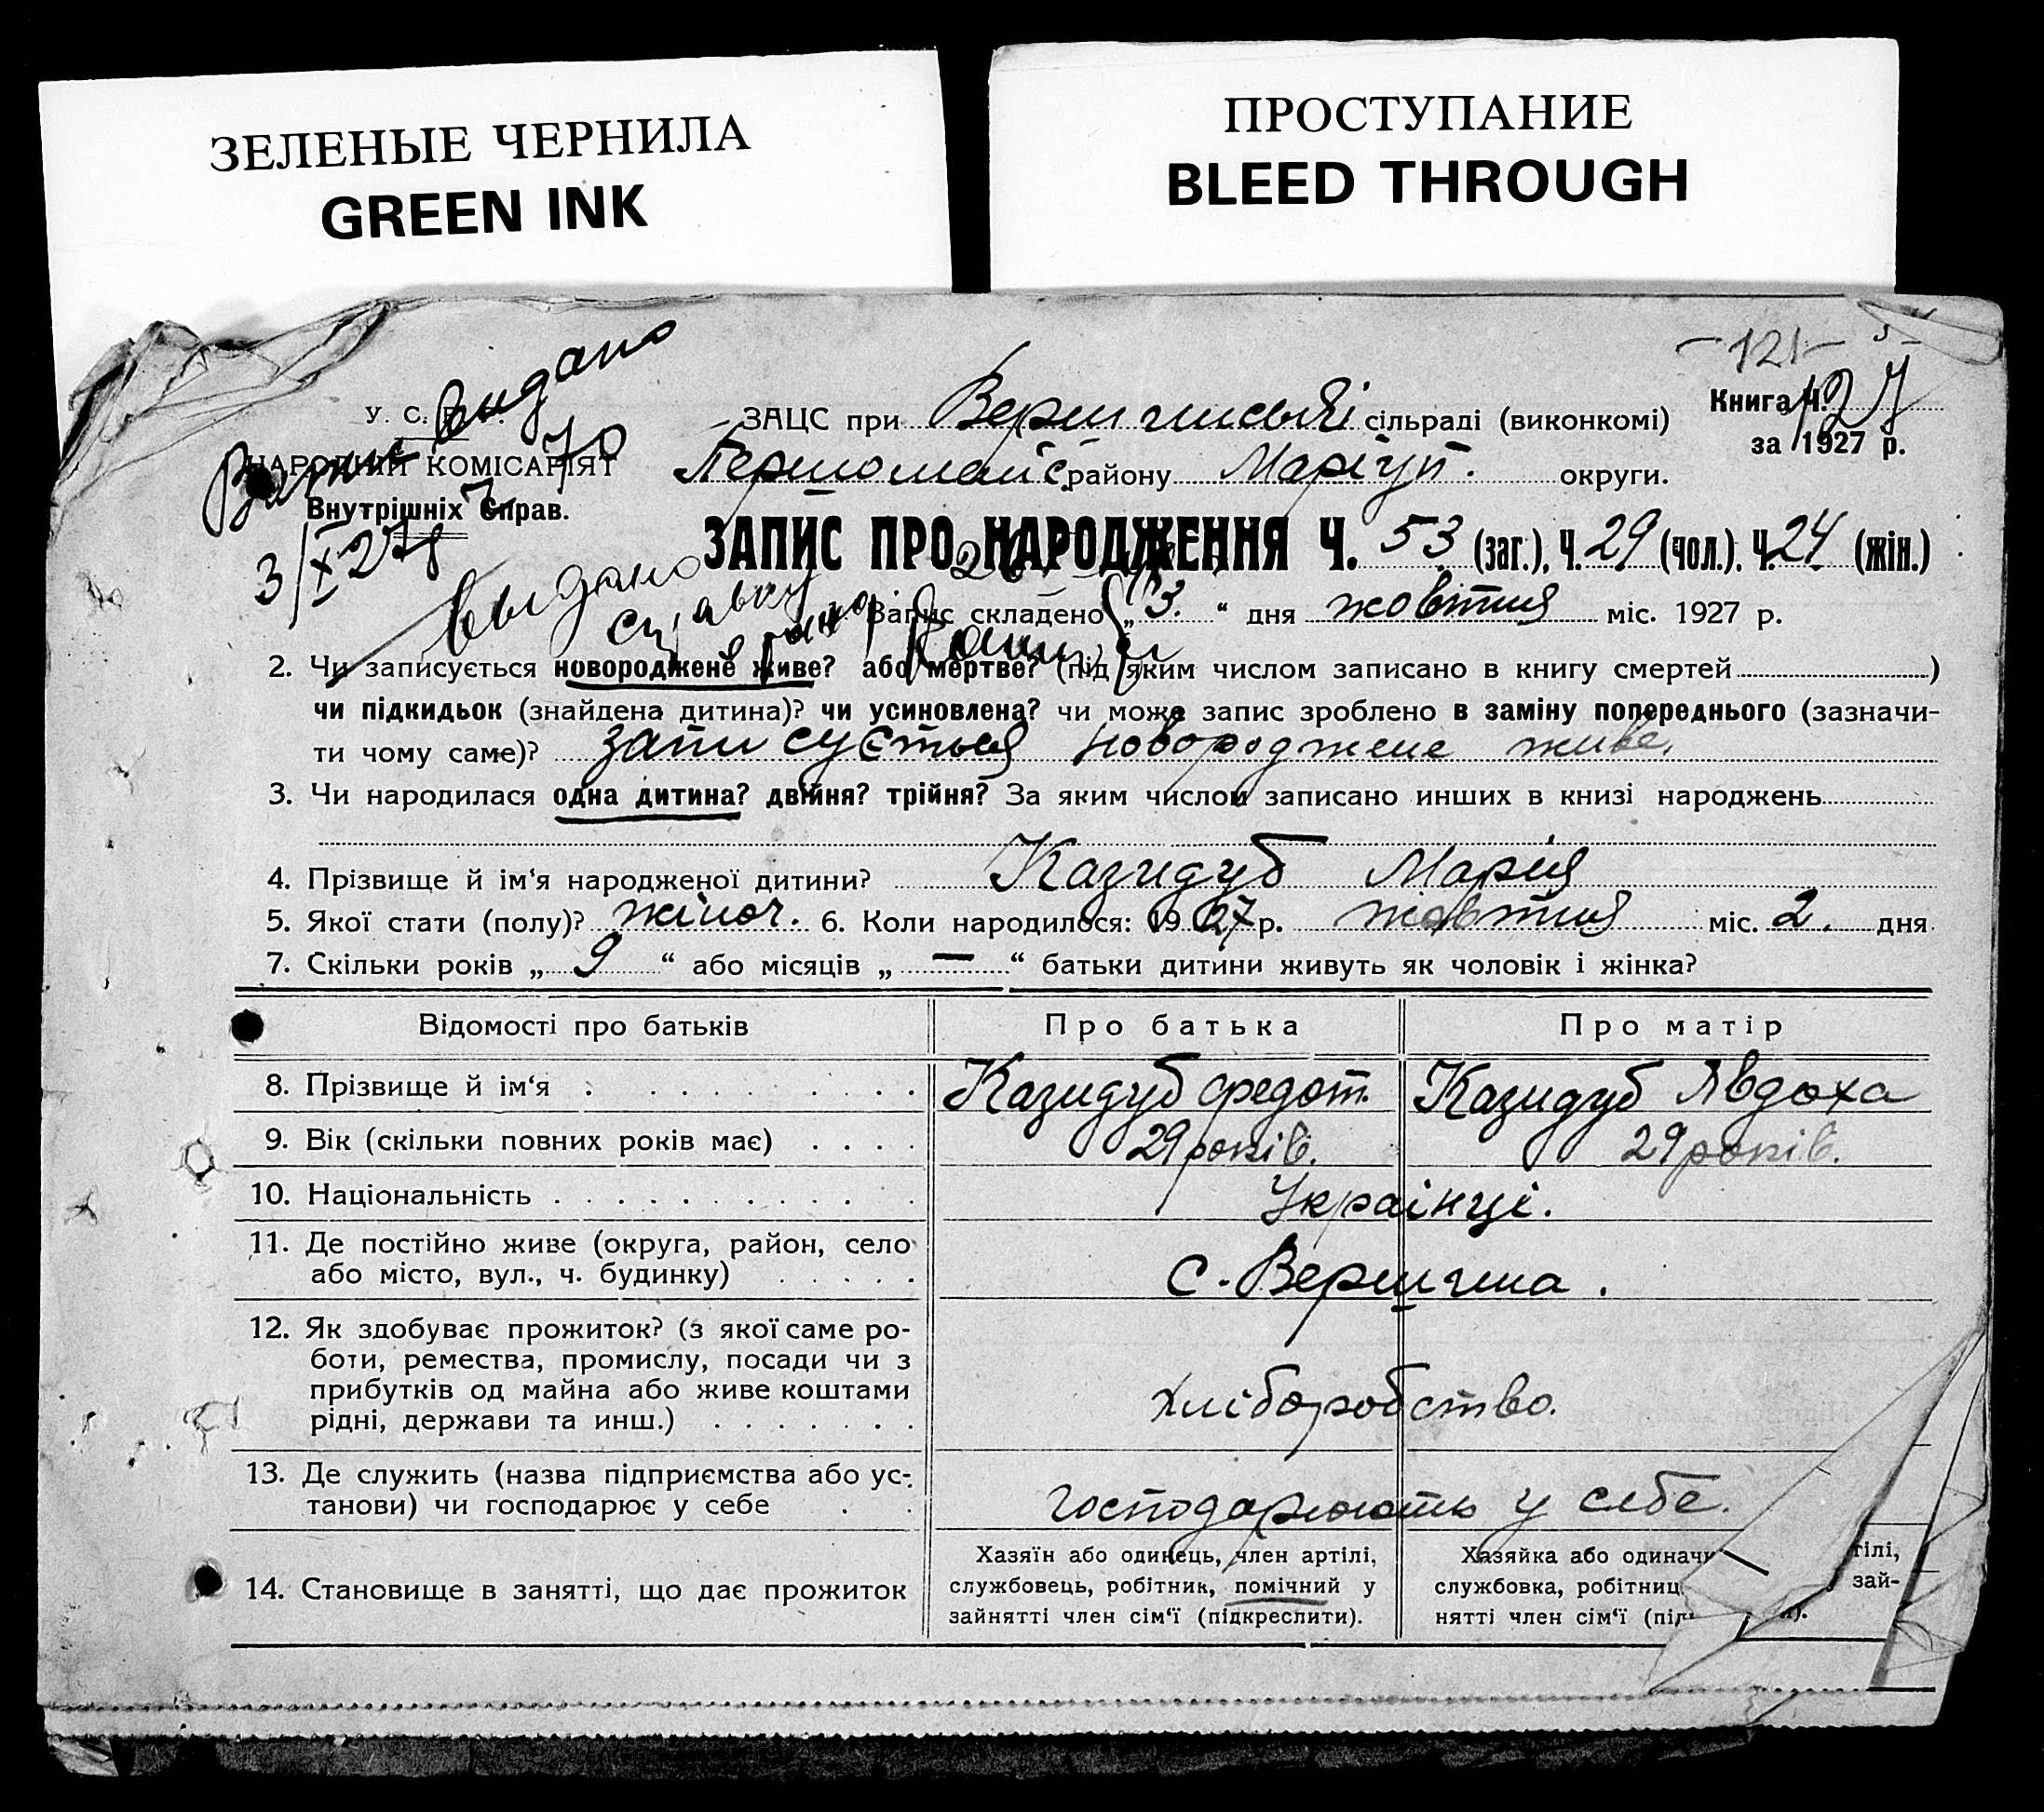 ЗЕЛЕНЫЕ ЧЕРНИЛА
GREEN INK
ПРОСТУПАНИЕ
BLEED THROUGH
-121-
У. С. Р. Р.
НАРОДНІЙ КОМІСАРІЯТ
Внутрішніх Справ.
видано
70
3/X 27
ЗАЦС при сільраді (виконкомі)
Першомайс. району Маріуп. округи.
Книга Ч. 127
за 1927 р.
ЗАПИС ПРО НАРОДЖЕННЯ Ч. 53 (заг.), Ч. 29 (чол.). Ч. 24 (жін.)
выдано
1. Запис складено „3.“ дня жовтня міс. 1927 р.
2. Чи записується новороджене живе? або мертве? (під яким числом записано в книгу смертей )
чи підкидьок (знайдена дитина)? чи усиновлена? чи може запис зроблено в заміну попереднього (зазначи-
ти чому саме)? записується новороджене живе.
3. Чи народилася одна дитина? двійня? трійня? За яким числом записано инших в книзі народжень
4. Прізвище й ім‘я народженої дитини? Казидуб Марія
5. Якої стати (полу)? жіноч. 6. Коли народилося: 1927 р. жовтня міс. 2. дня
7. Скільки років „ 9 “ або місяців „ — “ батьки дитини живуть як чоловік і жінка?
Відомості про батьків Про батька Про матір
8. Прізвище й ім‘я . . . . . . . . Казидуб Федот. Казидуб Явдоха
9. Вік (скільки повних років має) . . . . 29 років. 29 років.
10. Національність . . . . . . . . . . . Українці.
11. Де постійно живе (округа, район, село
або місто, вул., ч. будинку) . . . . . С. Вершина.
12. Як здобуває прожиток? (з якої саме ро-
боти, ремества, промислу, посади чи з
прибутків од майна або живе коштами
рідні, держави та инш.) . . . . . . . Хліборобство.
13. Де служить (назва підприємства або ус-
танови) чи господарює у себе . . господарюють у себе.
14. Становище в занятті, що дає прожиток
Хазяїн або одинець, член артілі,
службовець, робітник, помічний у
зайнятті член сім‘ї (підкреслити).
Хазяйка або одинач тілі,
службовка, робітниц зай-
нятті член сім‘ї (під ).